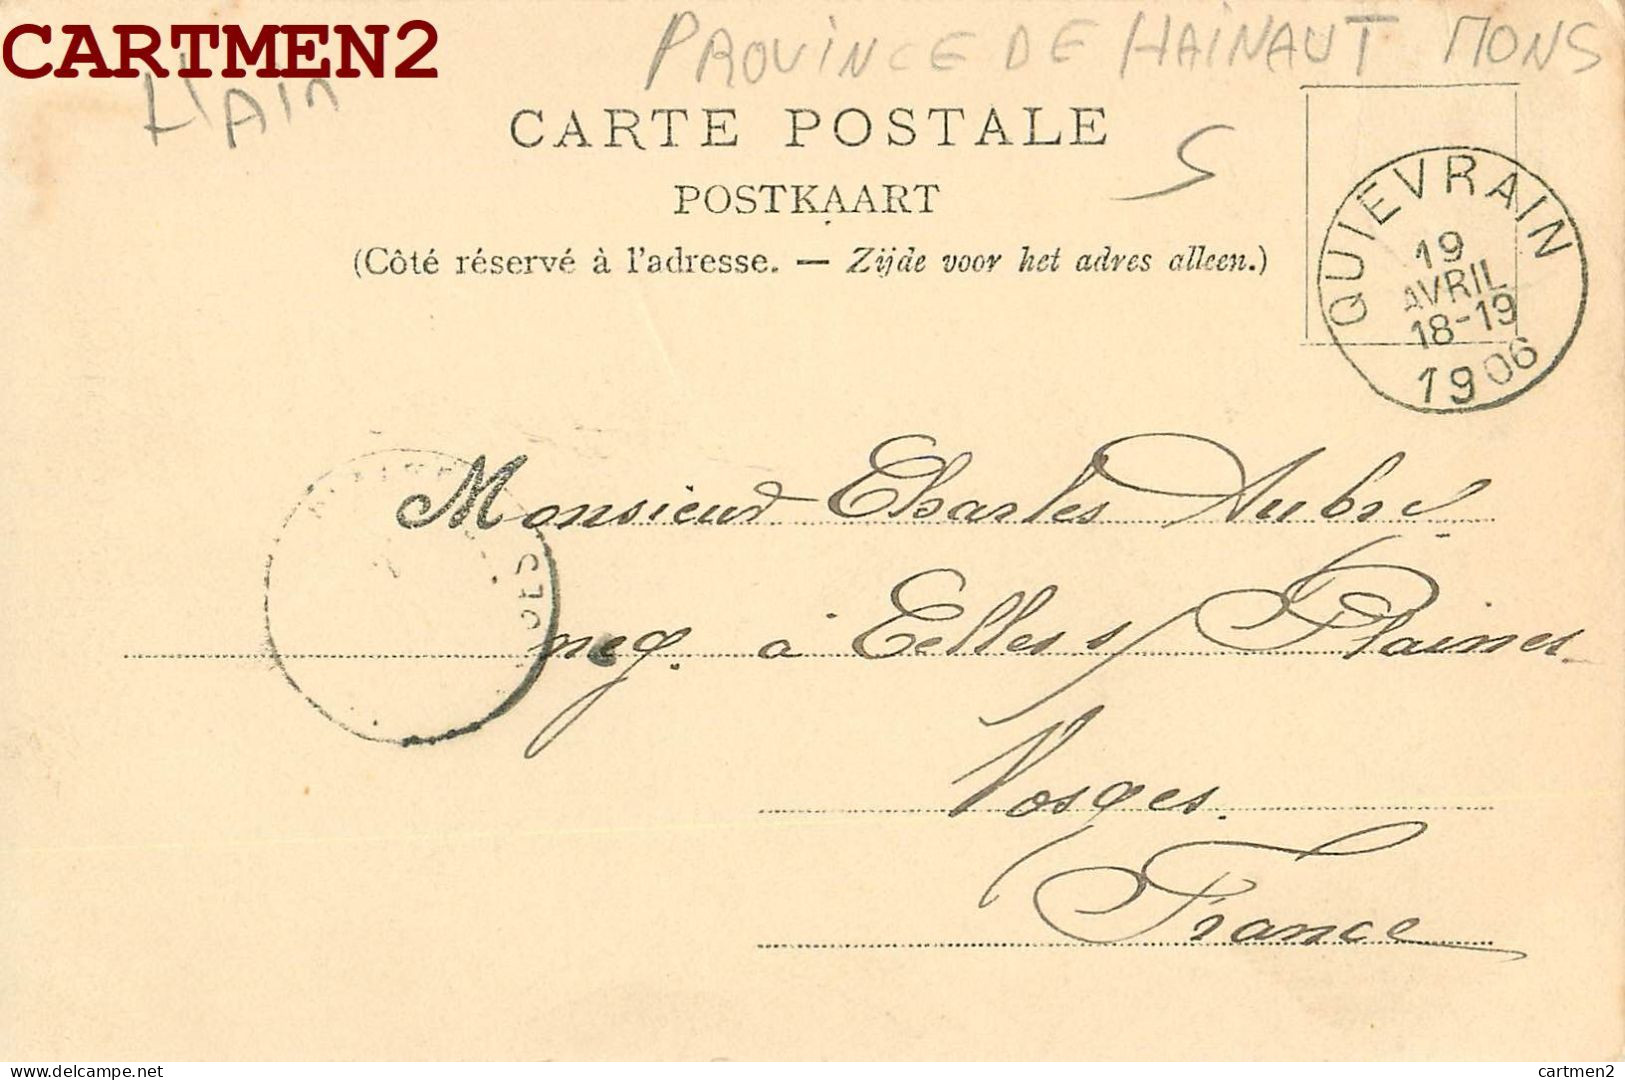 CARTMEN2
PROVINCE DE HAINAUT MONS
L'Ain
CARTE POSTALE
5
POSTKAART
(Côté réservé à l'adresse. — Zijde voor het adres alleen.)
QUIEVRAIN
19
AVRIL
18-19
1906
Monsieur Charles Aubry
neg. à Celles s/ Plaines
Vosges.
France
delcampe.net
cartmen2